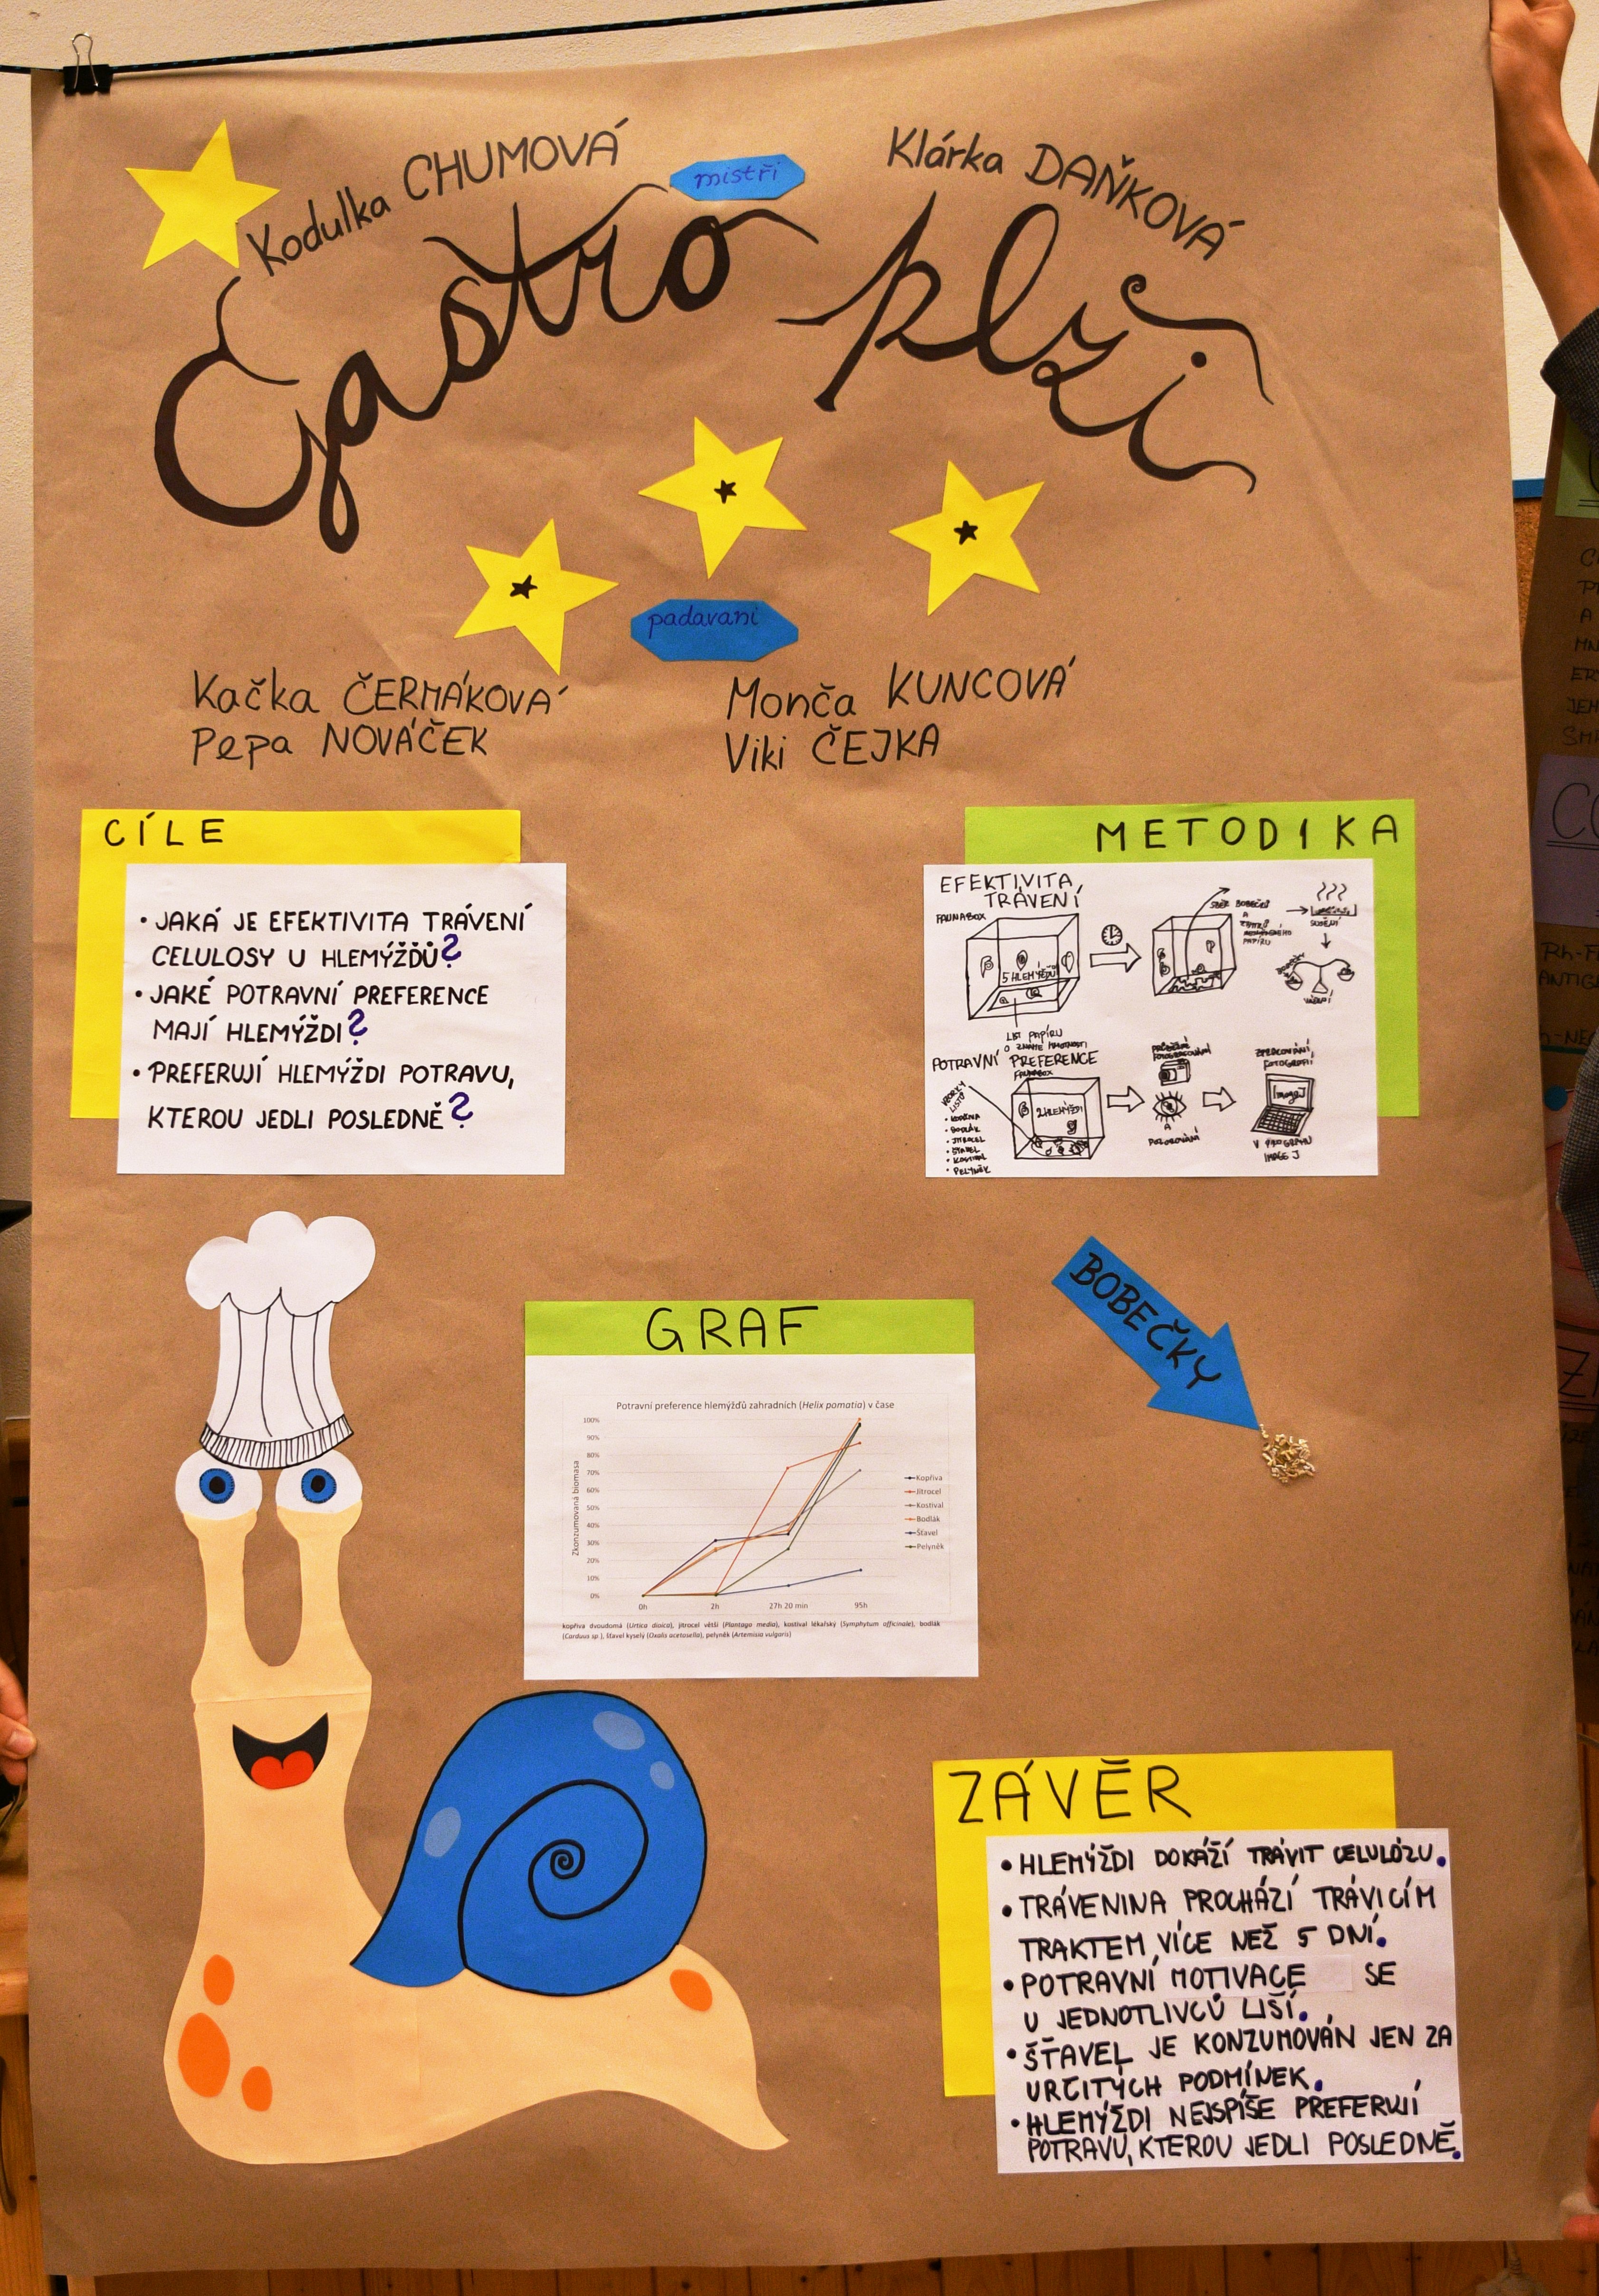 Kodulka CHUMOVÁ
mistři
Klárka DAŇKOVÁ
Gastro plži
padavani
Kačka ČERMÁKOVÁ
Pepa NOVÁČEK
Monča KUNCOVÁ
Viki ČEJKA
CÍLE
• JAKÁ JE EFEKTIVITA TRÁVENÍ
CELULOSY U HLEMÝŽĎŮ?
• JAKÉ POTRAVNÍ PREFERENCE
MAJÍ HLEMÝŽDI?
• PREFERUJÍ HLEMÝŽDI POTRAVU,
KTEROU JEDLI POSLEDNĚ?
METODIKA
EFEKTIVITA
TRÁVENÍ
FAUNABOX
5 HLEMÝŽDŮ
LIST PAPÍRU
O ZNÁMÉ HMOTNOSTI
SBĚR BOBEČKŮ
A
PAPÍRU
SUŠENÍ
VÁŽENÍ
POTRAVNÍ PREFERENCE
FAUNABOX
VZORKY
LISTŮ
• KOPŘIVA
• BODLÁK
• JITROCEL
• ŠŤAVEL
• KOSTIVAL
• PELYNĚK
2 HLEMÝŽDI
PRŮBĚŽNÉ
FOTOGRAFOVÁNÍ
A
POZOROVÁNÍ
ZPRACOVÁNÍ
FOTOGRAFIÍ
ImageJ
V PROGRAMU
IMAGE J
BOBEČKY
GRAF
Potravní preference hlemýžďů zahradních (Helix pomatia) v čase
Zkonzumovaná biomasa
100%
90%
80%
70%
60%
50%
40%
30%
20%
10%
0%
0h 2h 27h 20 min 95h
Kopřiva
Jitrocel
Kostival
Bodlák
Šťavel
Pelyněk
kopřiva dvoudomá (Urtica dioica), jitrocel větší (Plantago media), kostival lékařský (Symphytum officinale), bodlák
(Carduus sp.), šťavel kyselý (Oxalis acetosella), pelyněk (Artemisia vulgaris)
ZÁVĚR
• HLEMÝŽDI DOKÁŽÍ TRÁVIT CELULÓZU.
• TRÁVENINA PROCHÁZÍ TRÁVICÍM
TRAKTEM VÍCE NEŽ 5 DNÍ.
• POTRAVNÍ MOTIVACE SE
U JEDNOTLIVCŮ LIŠÍ.
• ŠŤAVEL JE KONZUMOVÁN JEN ZA
URČITÝCH PODMÍNEK.
• HLEMÝŽDI NEJSPÍŠE PREFERUJÍ
POTRAVU, KTEROU JEDLI POSLEDNĚ.